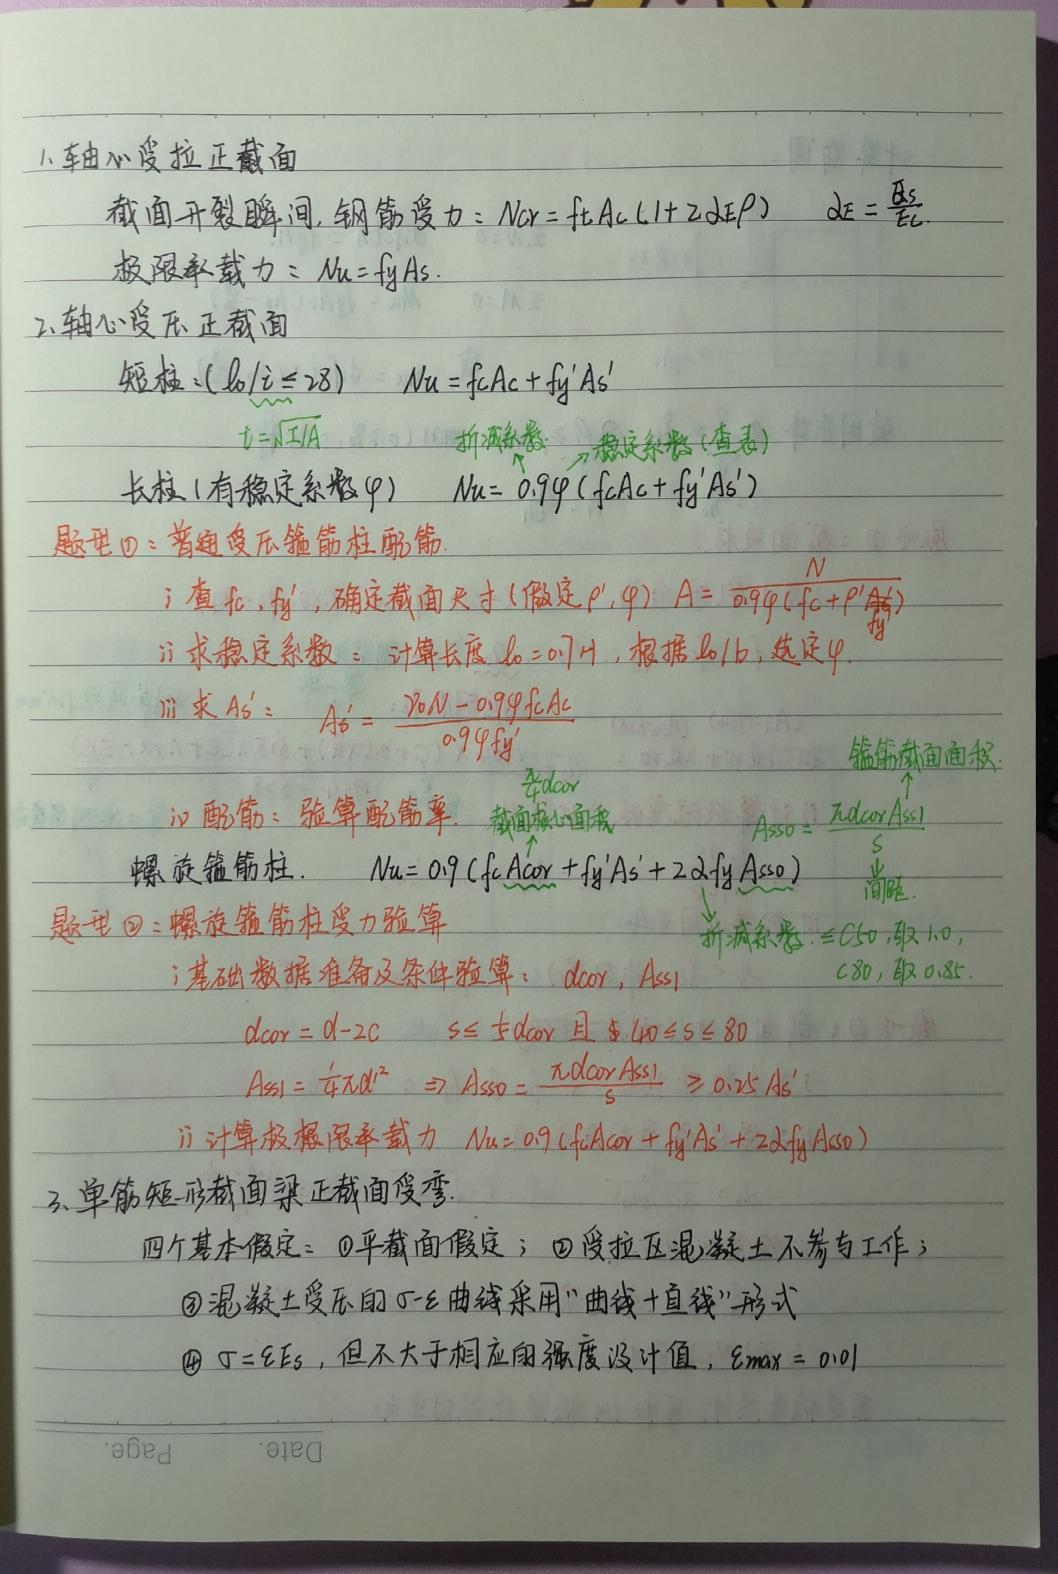 1、轴心受拉正截面
截面开裂瞬间,钢筋受力:Ncr=ftAc(1+2αEρ) αE=Es/Ec.
极限承载力:Nu=fyAs.
2、轴心受压正截面
短柱:(l0/i≤28) Nu=fcAc+fy'As'
i=√I/A 折减系数. 稳定系数(查表)
长柱(有稳定系数φ) Nu=0.9φ(fcAc+fy'As')
题型①:普通受压箍筋柱配筋.
i 查fc,fy',确定截面尺寸(假定ρ',φ) A=N/0.9φ(fc+ρ'fy')
ii 求稳定系数:计算长度l0=0.7H,根据l0/b,选定φ.
iii 求As': As'=γ0N-0.9φfcAc/0.9φfy'
箍筋截面面积.
π/4dcor
iv 配筋:验算配筋率. 截面核心面积 Ass0=πdcorAss1/s
螺旋箍筋柱. Nu=0.9(fcAcor+fy'As'+2αfyAss0) 间距.
题型②:螺旋箍筋柱受力验算 折减系数.≤C50,取1.0,
C80,取0.85.
i 基础数据准备及条件验算: dcor,Ass1
dcor=d-2c s≤1/5dcor且40≤s≤80
Ass1=1/4πd'² ⇒ Ass0=πdcorAss1/s ≥0.25As'
ii 计算极限承载力 Nu=0.9(fcAcor+fy'As'+2αfyAss0)
3、单筋矩形截面梁正截面受弯.
四个基本假定:①平截面假定;②受拉区混凝土不参与工作;
③混凝土受压的σ-ε曲线采用"曲线+直线"形式
④σ=εEs,但不大于相应的强度设计值,εmax=0.01
Date. Page.